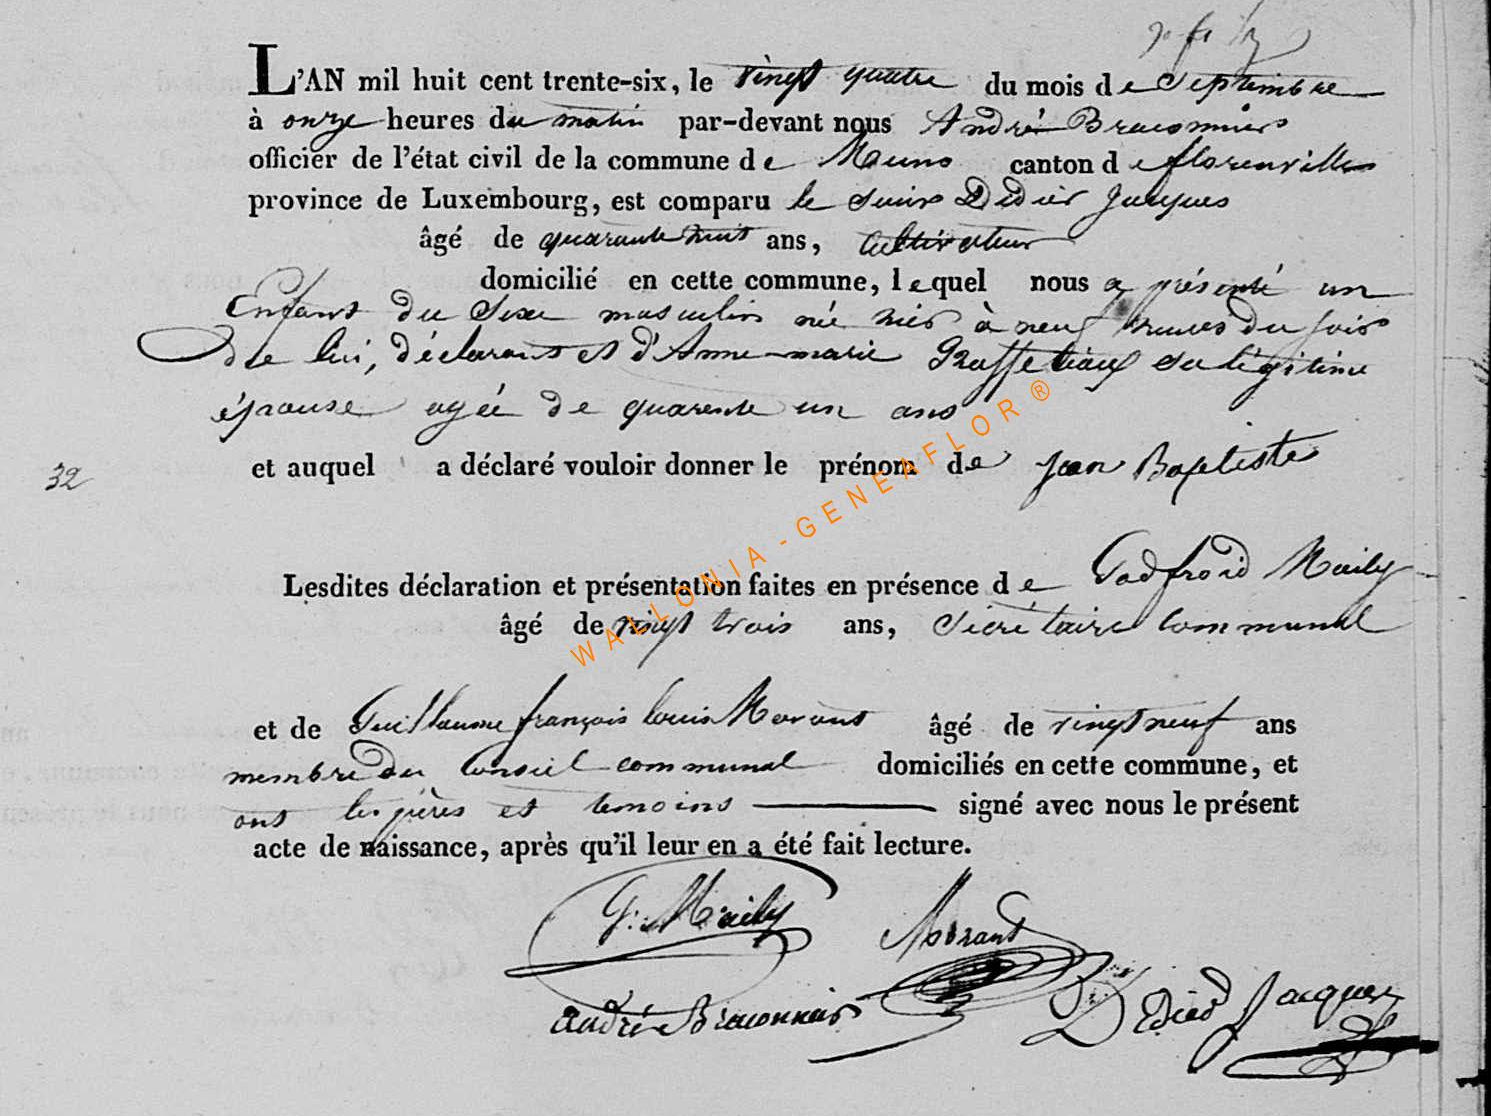 L'AN mil huit cent trente-six, le vingt quatre du mois de Septembre
à onze heures du matin par-devant nous André Braconnier
officier de l'état civil de la commune de Muno canton de florenville
province de Luxembourg, est comparu le Sieur Didier Jacques
âgé de quarante huit ans, Cultivateur
domicilié en cette commune, lequel nous a présenté un
Enfant du Sexe masculin né hier à neuf heures du soir
de lui, déclarant et d'Anne-marie Raffetiaux sa légitime
épouse agée de quarente un ans
32
et auquel a déclaré vouloir donner le prénom de Jean Baptiste
Lesdites déclaration et présentation faites en présence de Godfroid Maily
âgé de vingt trois ans, Sécrétaire Communal
et de Guillaume françois louis Morant âgé de vingt neuf ans
membre du Conseil communal domiciliés en cette commune, et
ont les pères et temoins signé avec nous le présent
acte de naissance, après qu'il leur en a été fait lecture.
G: Maily
Morant
André Braconnier
Didier Jacques
WALLONIA-GENEAFLOR®